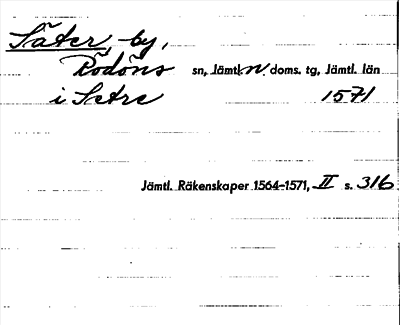 Säter, by,
Rödöns sn, Jämtl. n. doms. tg, Jämtl. län
i Setre 1571
Jämtl. Räkenskaper 1564-1571, II s. 316